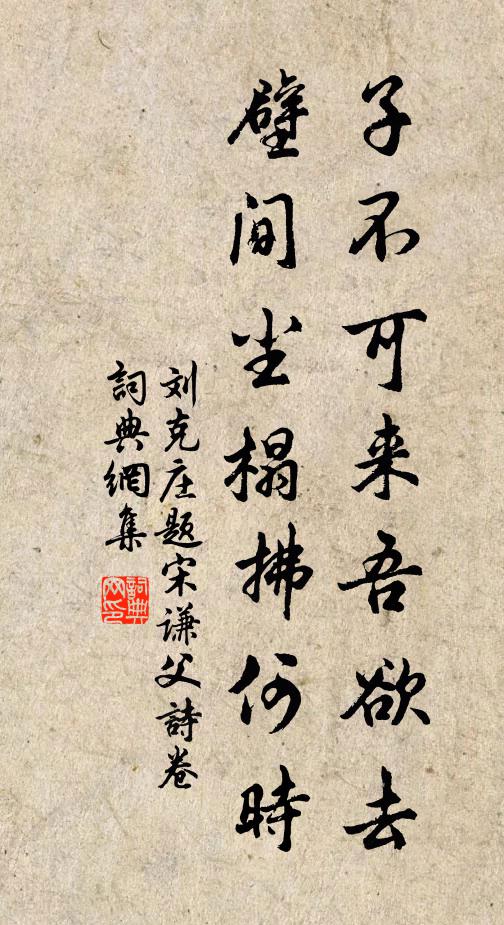 子不可来吾欲去
壁间尘榻拂何时
刘克庄题宋谦父詩卷
詞典網集
詞典网印